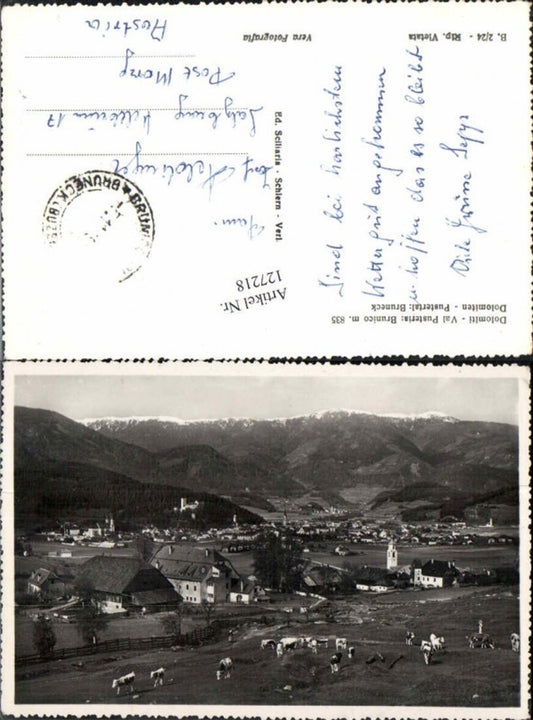 Dolomiti - Val Pusteria: Brunico m. 835
Dolomiten - Pustertal: Bruneck
Sind bei herrlichstem
Wetter gut angekommen
u. hoffen das es so bleibt
Viele Grüsse Sepp
B. 2/24 - Rip. Vietata
Vera Fotografia
Ed. Sciliaria - Schlern - Verl.
Fam.
Salzburg
17
Post
Austria
BRUNECK
Artikel Nr.
127218